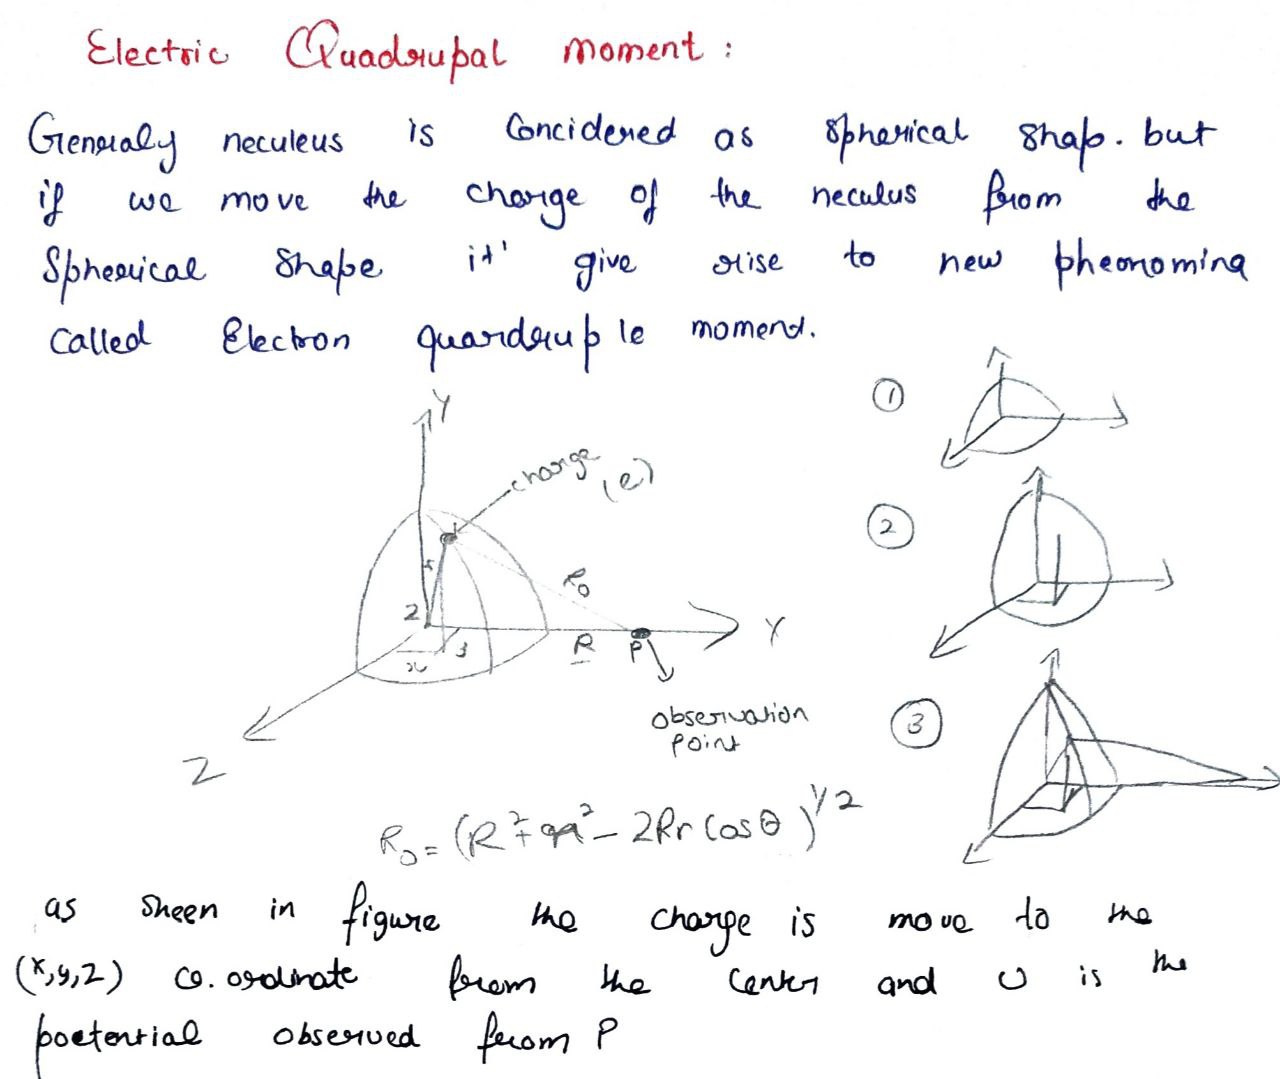 Electric Quadrupal moment :
Generaly neculeus is Concidered as Spherical shap. but
if we move the charge of the neculus from the
Spherical Shape it' give rise to new pheonomina
called Electron quardruple moment.
Y
charge (e)
r
R₀
2
x
3
R
P
Y
Z
observation
point
①
②
③
R₀ = (R² + r² - 2Rr Cosθ)^1/2
as sheen in figure the charge is move to the
(x,y,z) co. ordinate from the center and U is the
poetential observed from P